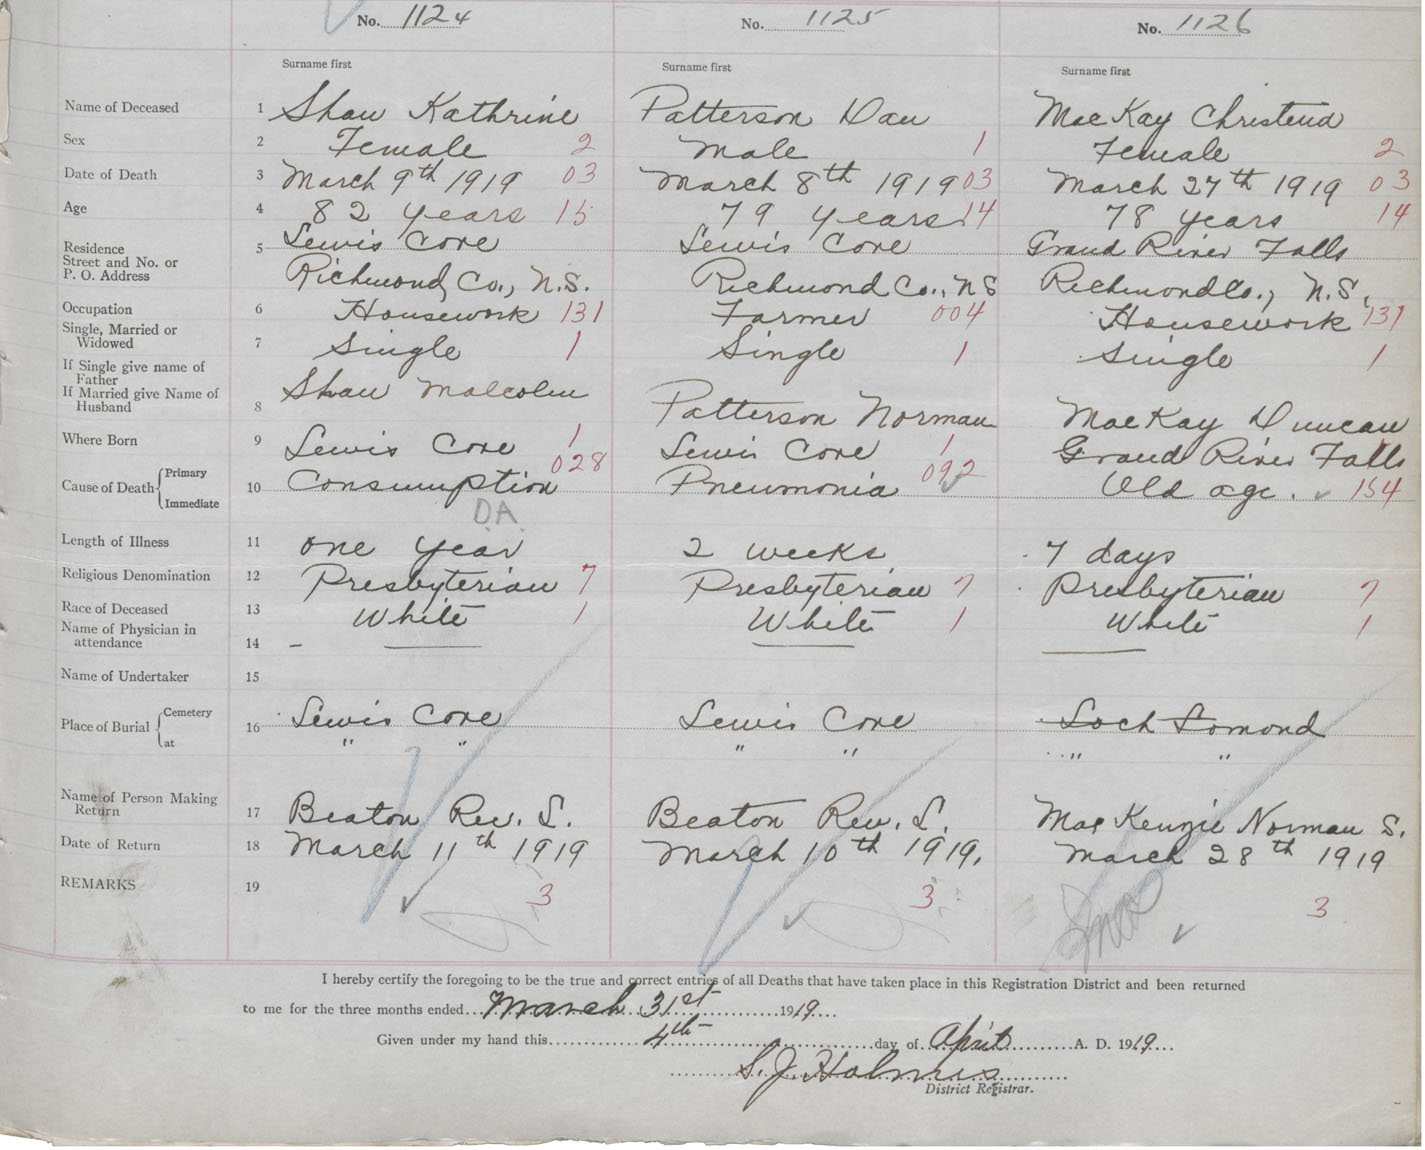 No. 1124 No. 1125 No. 1126
Surname first Surname first Surname first
Name of Deceased 1 Shaw Kathrine Patterson Dan MacKay Christena
Sex 2 Female 2 Male 1 Female 2
Date of Death 3 March 9th 1919 03 March 8th 1919 03 March 27th 1919 03
Age 4 82 years 15 79 years 14 78 years 14
Residence 5 Lewis Cove Lewis Cove Grand River Falls
Street and No. or
P. O. Address Richmond, Co., N.S. Richmond Co., N S Richmond Co., N.S.
Occupation 6 Housework 131 Farmer 004 Housework 131
Single, Married or
Widowed 7 Single 1 Single 1 Single 1
If Single give name of
Father
If Married give Name of Shaw Malcolm
Husband 8 Patterson Norman MacKay Duncan
Where Born 9 Lewis Cove 1 Lewis Cove 1 Grand River Falls 1
Cause of Death Primary 028 092
10 Consumption Pneumonia Old age. 154
Immediate D.A.
Length of Illness 11 one year 2 weeks 7 days
Religious Denomination 12 Presbyterian 7 Presbyterian 7 Presbyterian 7
Race of Deceased 13 White 1 White 1 White 1
Name of Physician in
attendance 14 –
Name of Undertaker 15
Place of Burial Cemetery 16 Lewis Cove Lewis Cove Loch Lomond
at " " " " " "
Name of Person Making
Return 17 Beaton Rev. L. Beaton Rev. L. MacKenzie Norman S.
Date of Return 18 March 11th 1919 March 10th 1919. March 28th 1919
REMARKS 19 3 3 3
I hereby certify the foregoing to be the true and correct entries of all Deaths that have taken place in this Registration District and been returned
to me for the three months ended March 31st 1919
Given under my hand this 4th day of April A. D. 1919
S. J. Holmes
District Registrar.